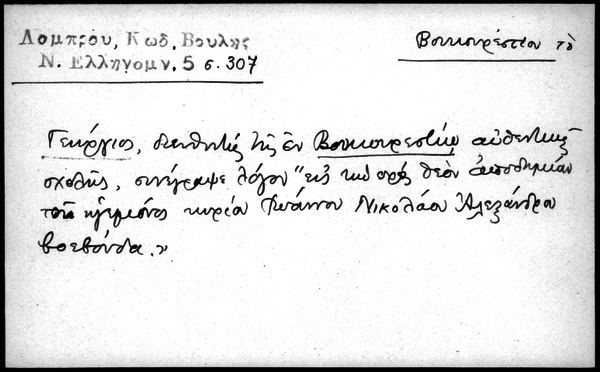 Λαμπρου, Κωδ. Βουλης
Ν. Ελληνομν. 5 σ. 307
Βουκουρέστιον τὸ
Γεώργιος, διευθυντὴς τῆς ἐν Βουκουρεστίῳ αὐθεντικῆς
σχολῆς, συνέγραψε λόγον "εἰς τὴν πρὸς θεὸν ἀποδημίαν
τοῦ ἡγεμόνος κυρίου Ἰωάννου Νικολάου Ἀλεξάνδρου
βοεβόνδα."